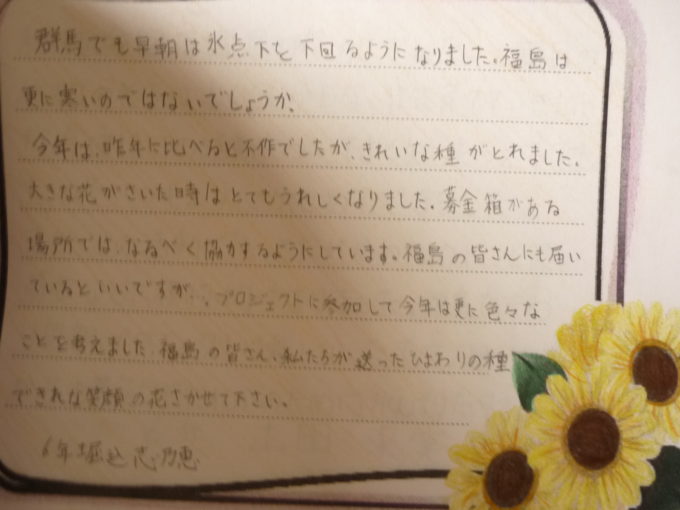 群馬でも早朝は氷点下を下回るようになりました。福島は
更に寒いのではないでしょうか。
今年は、昨年に比べると不作でしたが、きれいな種がとれました。
大きな花がさいた時はとてもうれしくなりました。募金箱がある
場所では、なるべく協力するようにしています。福島の皆さんにも届い
ているといいですが、プロジェクトに参加して今年は更に色々な
ことを考えました。福島の皆さん、私たちが送ったひまわりの種
できれな笑顔の花さかせて下さい。
6年 堀込 志乃恵